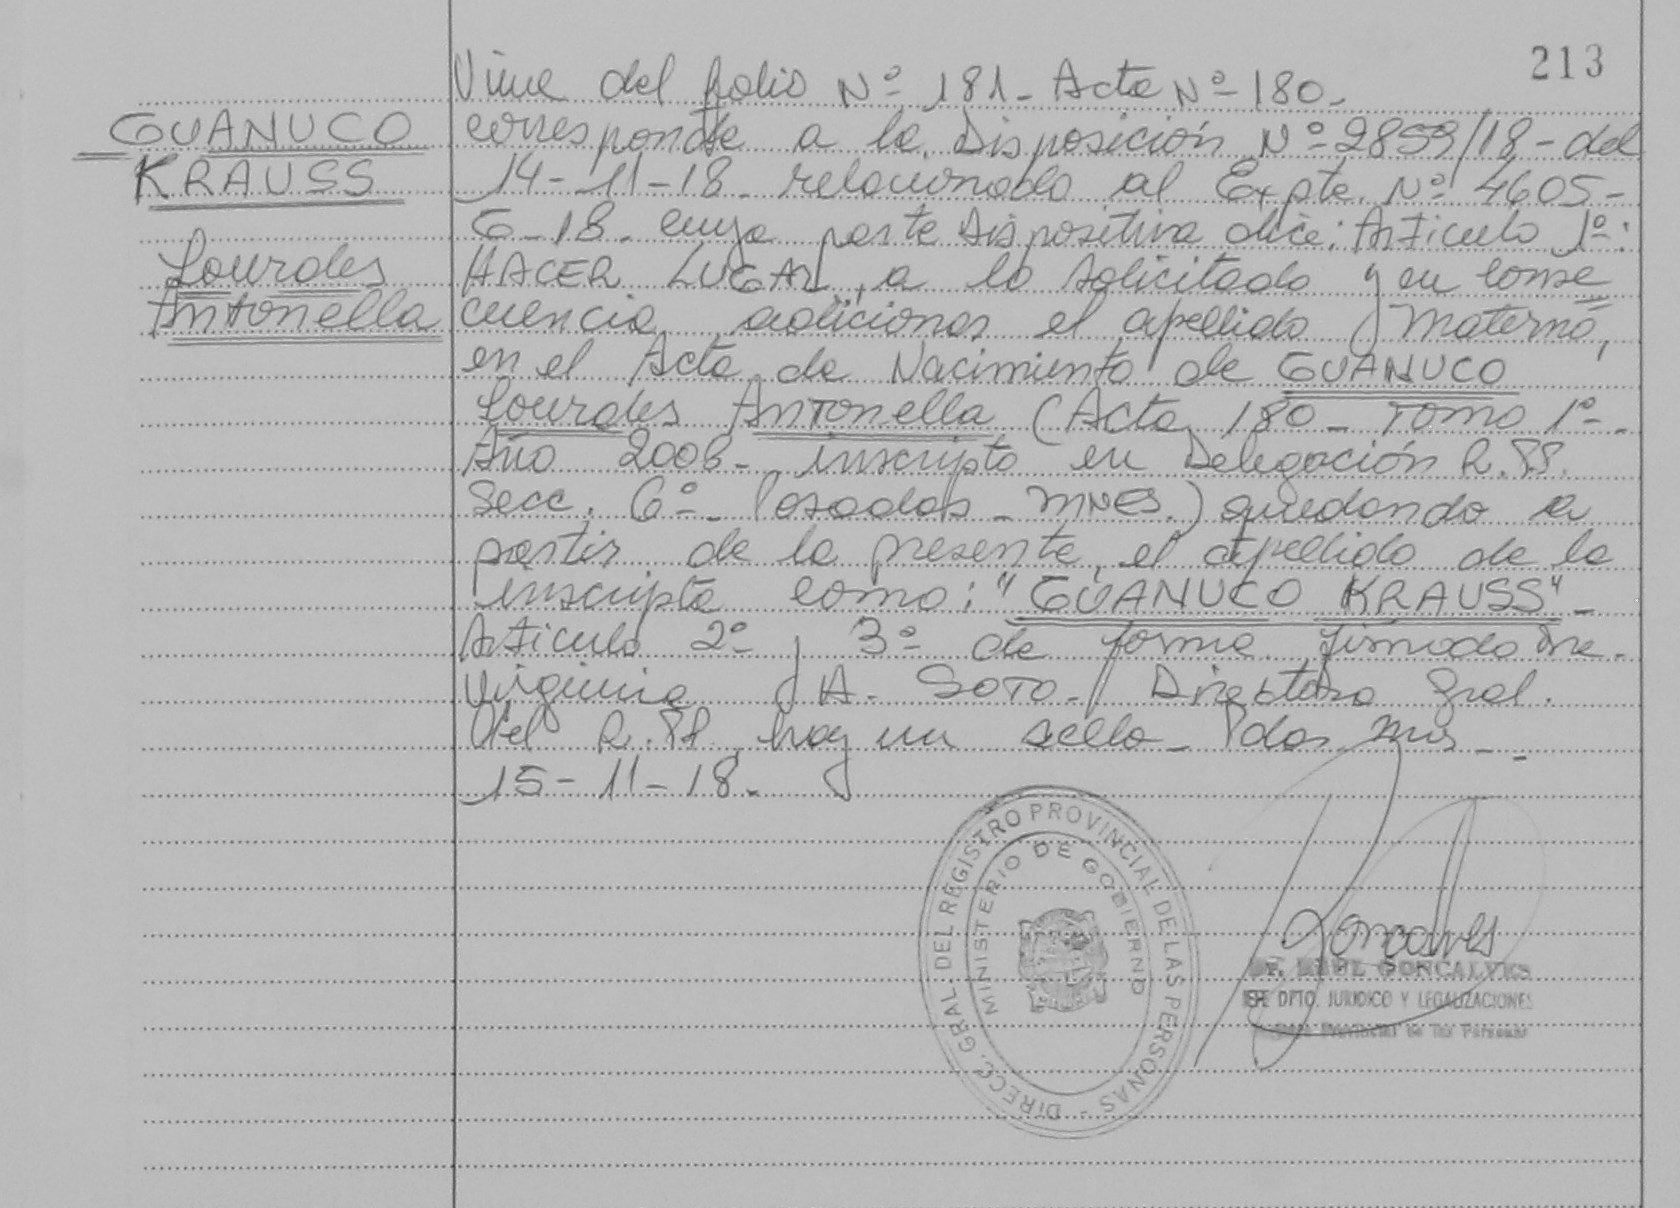 213
GUANUCO
KRAUSS
Lourdes
Antonella
Viene del folio Nº 181- Acta Nº 180-
corresponde a la Disposición Nº 2859/18- del
14-11-18- relacionado al Expte. Nº 4605-
G-18- cuya parte dispositiva dice: Artículo 1º:
HACER LUGAR, a lo solicitado y en conse
cuencia, adicionar el apellido materno,
en el Acta de Nacimiento de GUANUCO
Lourdes Antonella (Acta 180- Tomo 1º-
Año 2008- inscripto en Delegación R.PP.
Secc. 6º- Posadas- MNES.) quedando a
partir de la presente, el apellido de la
inscripta como: "GUANUCO KRAUSS"-
Artículo 2º y 3º de forma. firmado
Virginia A. SOTO- Directora Gral.
del R.PP. hay un sello- Pdas. Mns-
15-11-18.
DIRECC. GRAL. DEL REGISTRO PROVINCIAL DE LAS PERSONAS -
MINISTERIO DE GOBIERNO
Goncalves
Dr. RAUL GONCALVES
JEFE DPTO. JURIDICO Y LEGALIZACIONES
Registro Provincial de las Personas